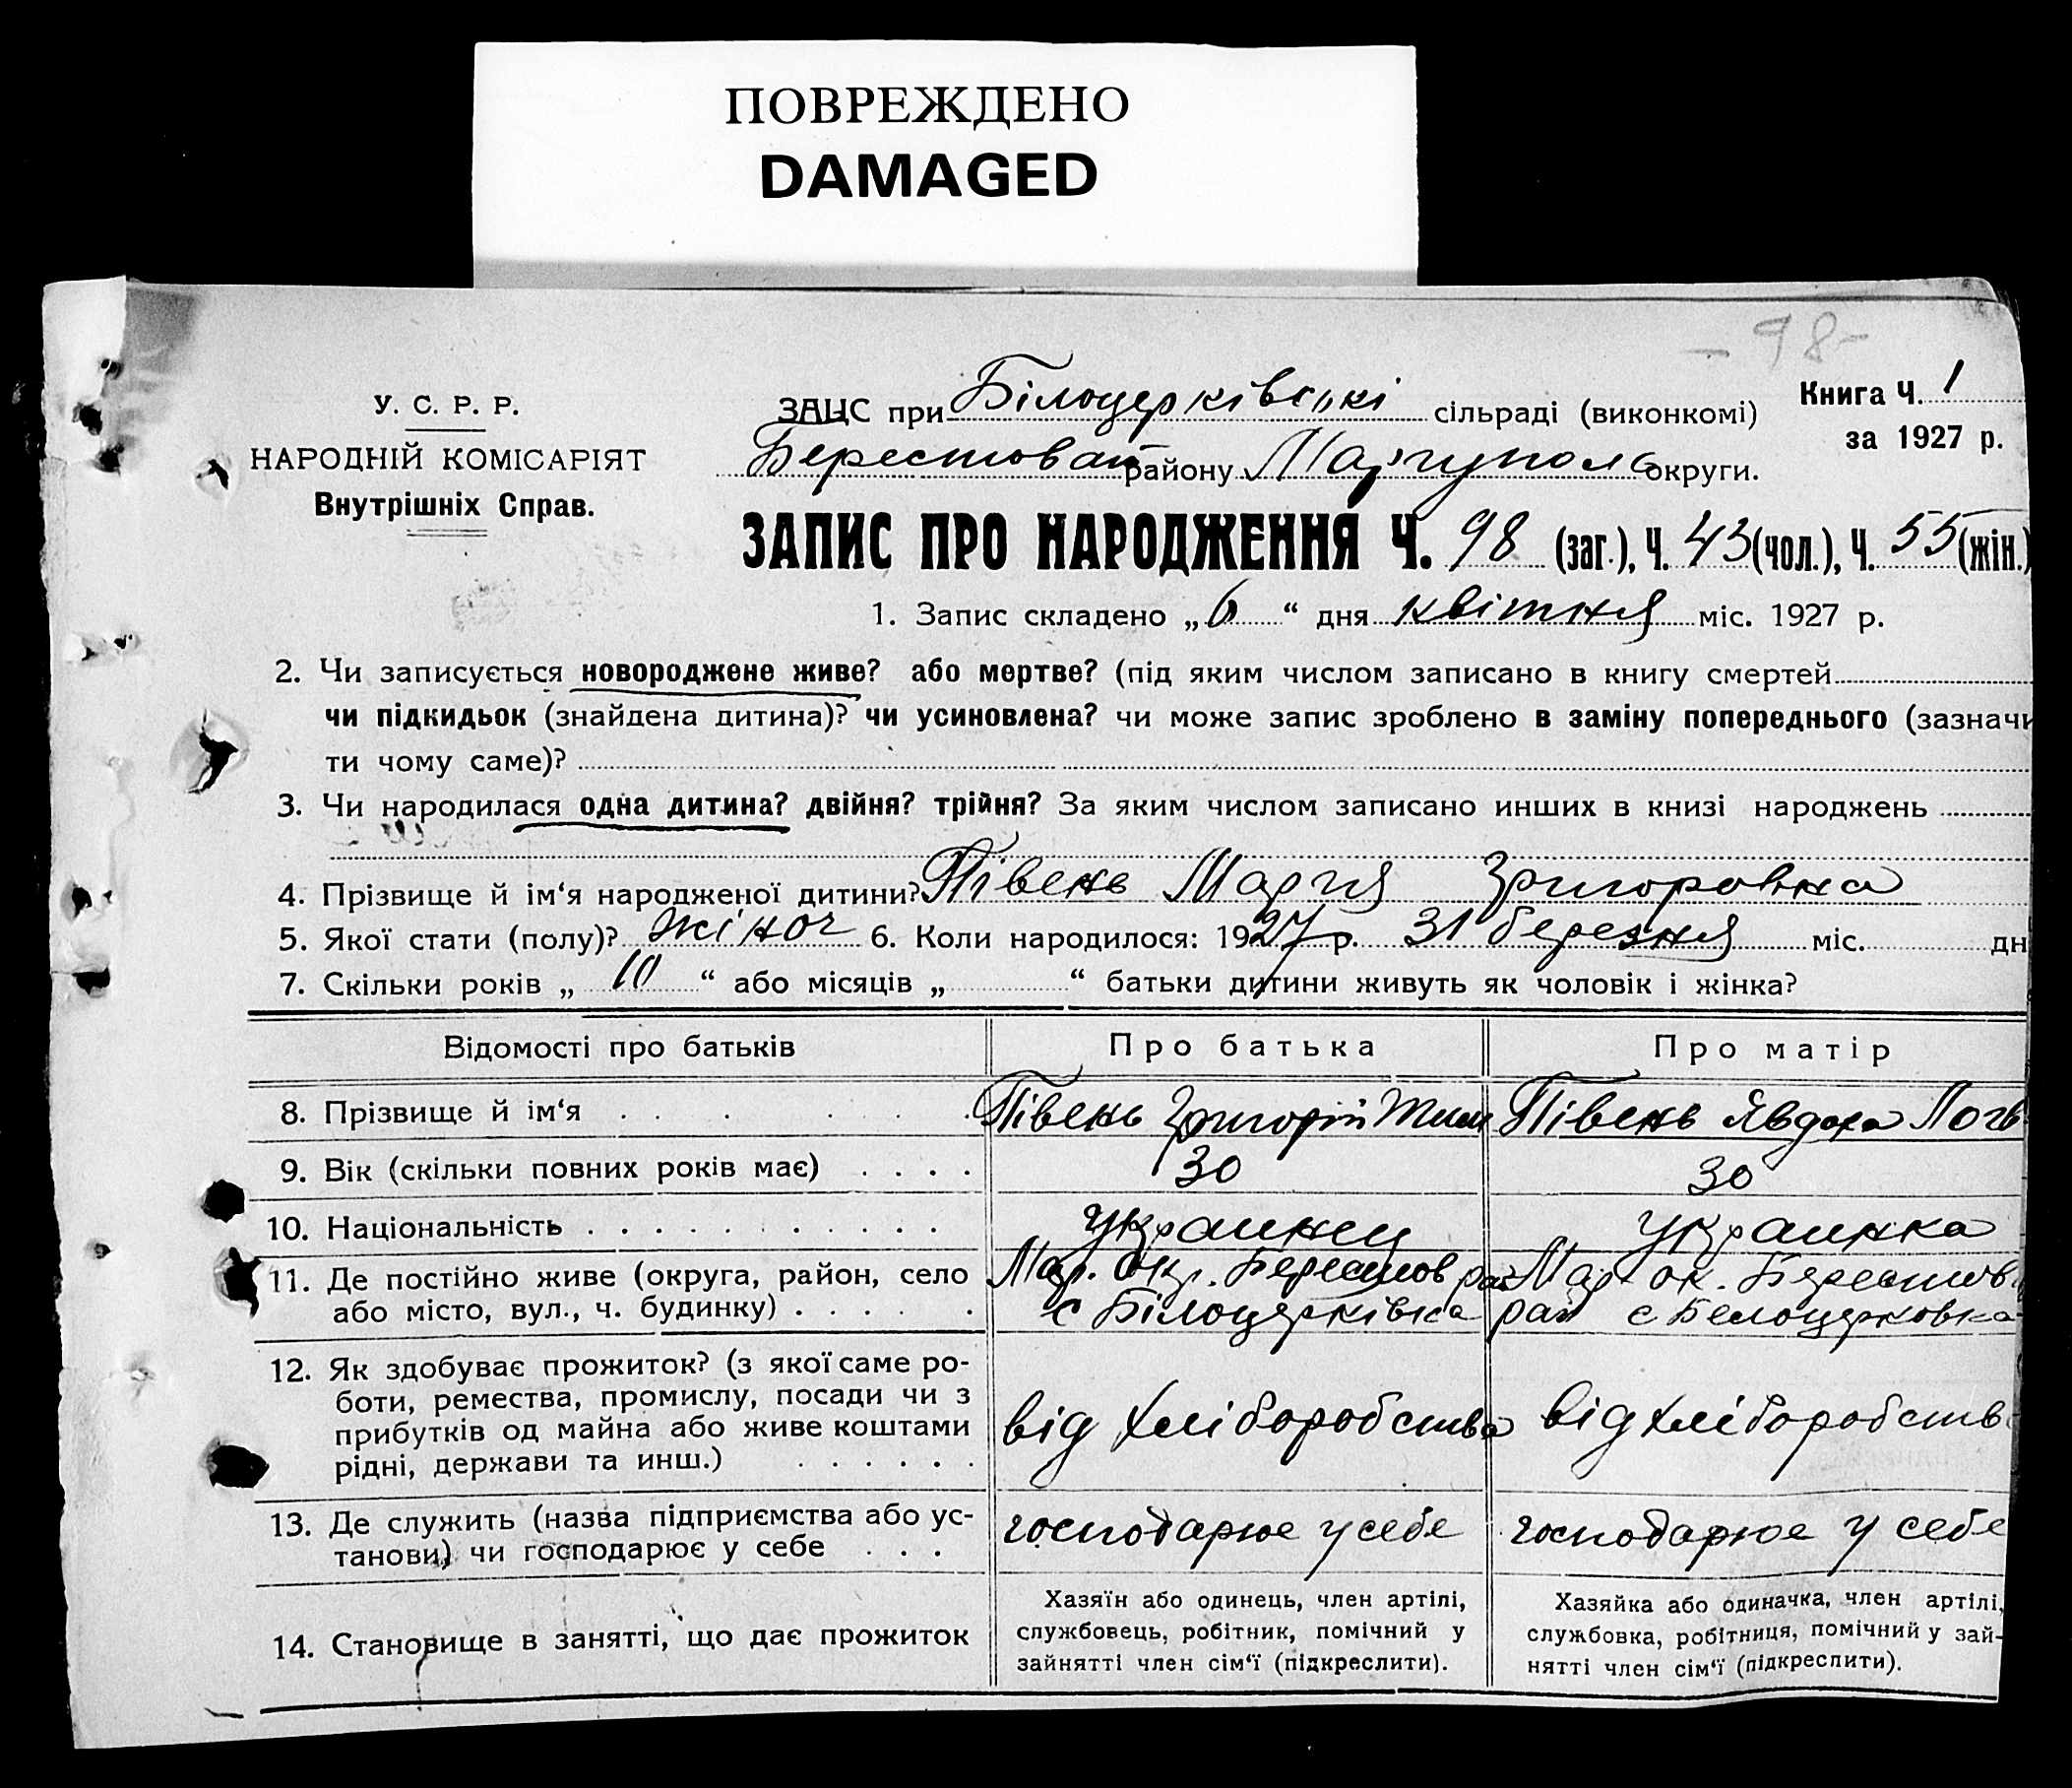 ПОВРЕЖДЕНО
DAMAGED
-98-
У. С. Р. Р.
НАРОДНІЙ КОМІСАРІЯТ
Внутрішніх Справ.
ЗАЦС при Білоцерківські сільраді (виконкомі)
Книга Ч. 1
за 1927 р.
Берестован району Маріуполь округи.
ЗАПИС ПРО НАРОДЖЕННЯ Ч. 98 (заг.), Ч. 43 (чол.), Ч. 55 (жін.)
1. Запис складено „ 6 “ дня квітня міс. 1927 р.
2. Чи записується новороджене живе? або мертве? (під яким числом записано в книгу смертей
чи підкидьок (знайдена дитина)? чи усиновлена? чи може запис зроблено в заміну попереднього (зазначи
ти чому саме)?
3. Чи народилася одна дитина? двійня? трійня? За яким числом записано инших в книзі народжень
4. Прізвище й ім‘я народженої дитини? Півень Мария Григоровна
5. Якої стати (полу)? жіноч 6. Коли народилося: 1927 р. 31 березня міс. дн
7. Скільки років „ 10 “ або місяців „ “ батьки дитини живуть як чоловік і жінка?
Відомості про батьків Про батька Про матір
8. Прізвище й ім‘я Півень Григорій Тим Півень Явдоха Логв
9. Вік (скільки повних років має) 30 30
10. Національність Украинец Украинка
11. Де постійно живе (округа, район, село Мар. окр. Берестов рай Мар. ок. Берестов
або місто, вул., ч. будинку) с Білоцерківка рай с Белоцерковка
12. Як здобуває прожиток? (з якої саме ро-
боти, ремества, промислу, посади чи з
прибутків од майна або живе коштами
рідні, держави та инш.)
від хліборобства від хліборобств
13. Де служить (назва підприємства або ус-
танови) чи господарює у себе
господарює у себе господарює у себе
14. Становище в занятті, що дає прожиток
Хазяїн або одинець, член артілі,
службовець, робітник, помічний у
зайнятті член сім‘ї (підкреслити).
Хазяйка або одиначка, член артілі,
службовка, робітниця, помічний у зай-
нятті член сім‘ї (підкреслити).